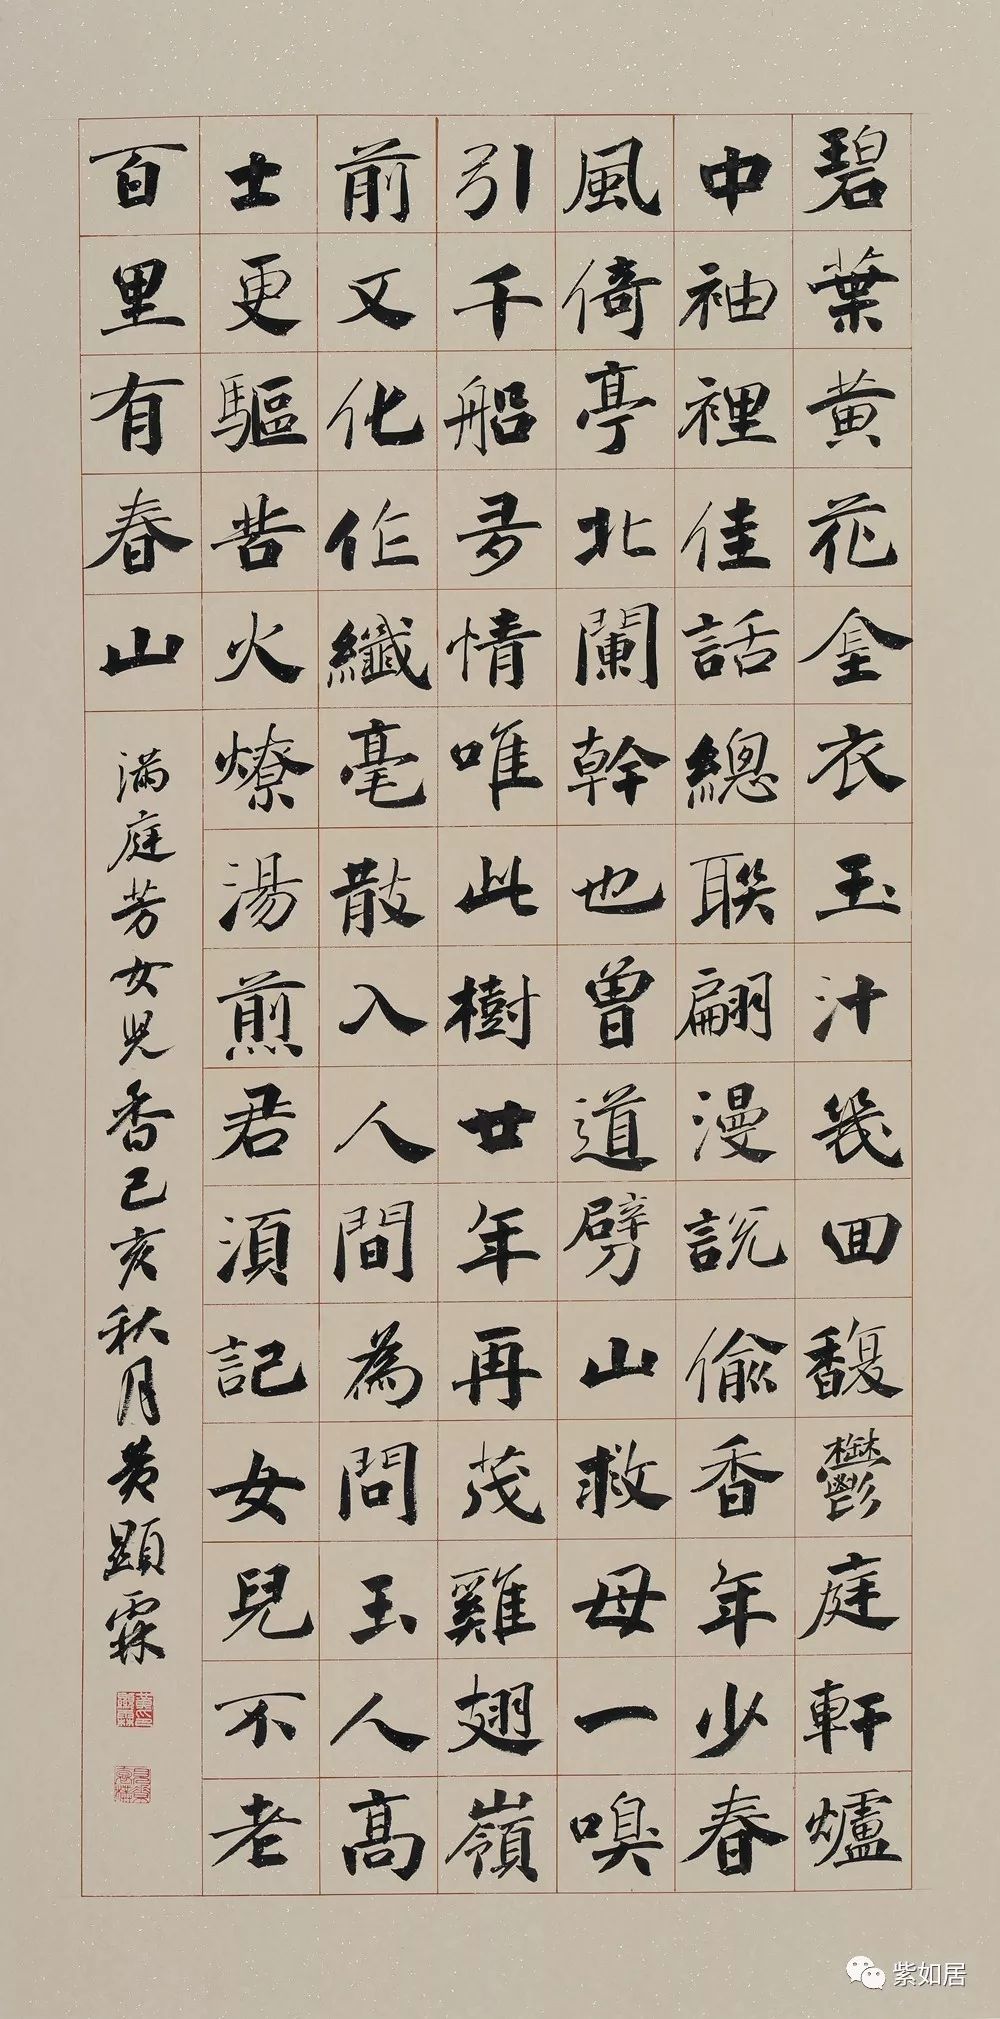 碧葉黄花金衣玉汁幾回馥鬱庭軒爐
中袖裡佳話總聯翩漫説偷香年少春
風倚亭北闌幹也曾道劈山救母一嗅
引千船 情唯此樹廿年再茂雞翅嶺
前又化作纖毫散入人間為問玉人高
士更驅苦火燎湯煎君須記女兒不老
百里有春山
满庭芳女児香己亥秋月黄顯霖
紫如居